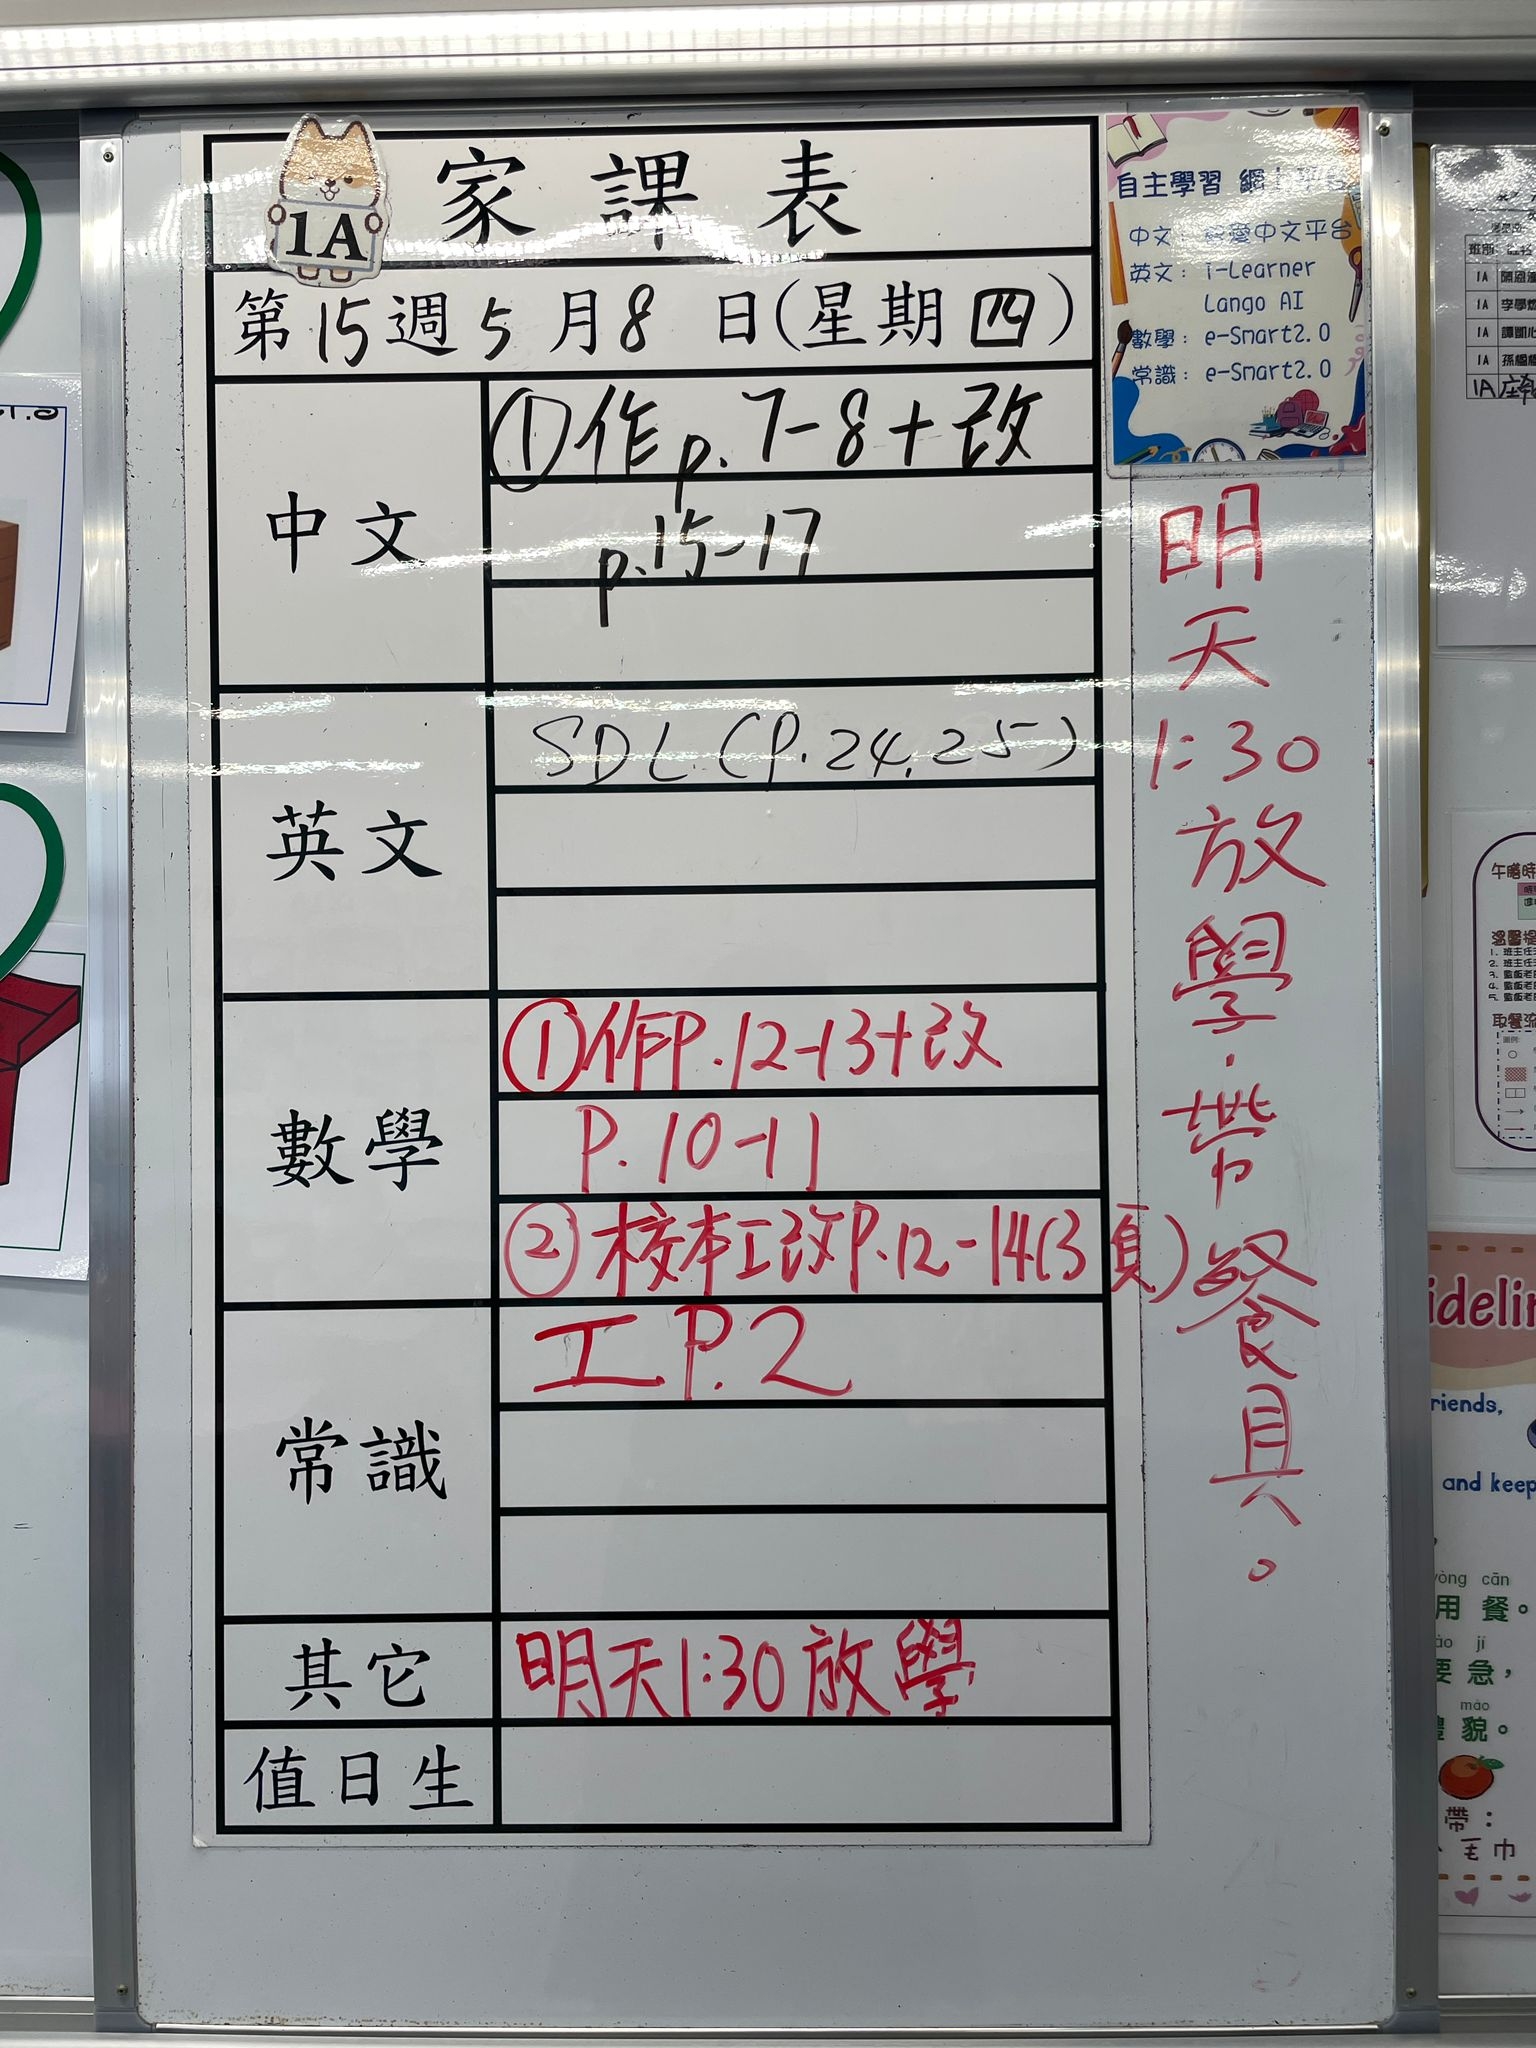 家課表
1A
第15週5月8日(星期四)
中文
①作p.7-8+改
p.15-17
英文
SDL(P.24,25)
數學
①作P.12-13+改
P.10-11
②校本工改P.12-14(3頁)
常識
工P.2
其它
明天1:30放學
值日生
自主學習
中文:
愛中文平台
英文: i-Learner
Lango AI
數學: e-Smart2.0
常識: e-Smart2.0
明天1:30放學.帶餐具。
班別
1A
1A
1A
1A
1A
午膳時
取餐流
idelin
riends,
and keep
yòng cān
用餐。
jí
要急，
mào
貌。
帶:
毛巾